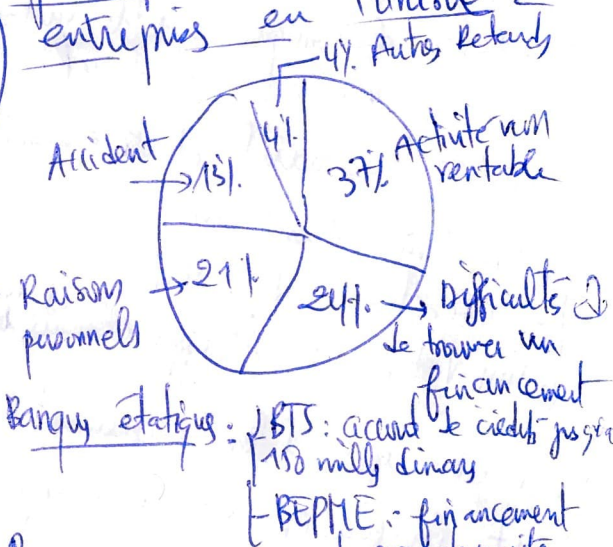 entreprises en Tunisie
4% Autres Retards
4%
Accident
13%
37% Activité non
rentable
Raisons
personnels
21%
24% → Difficulté
de trouver un
financement
Banques étatiques : BTS : accord de crédit jusqu'à
150 mille dinars
- BFPME : financement